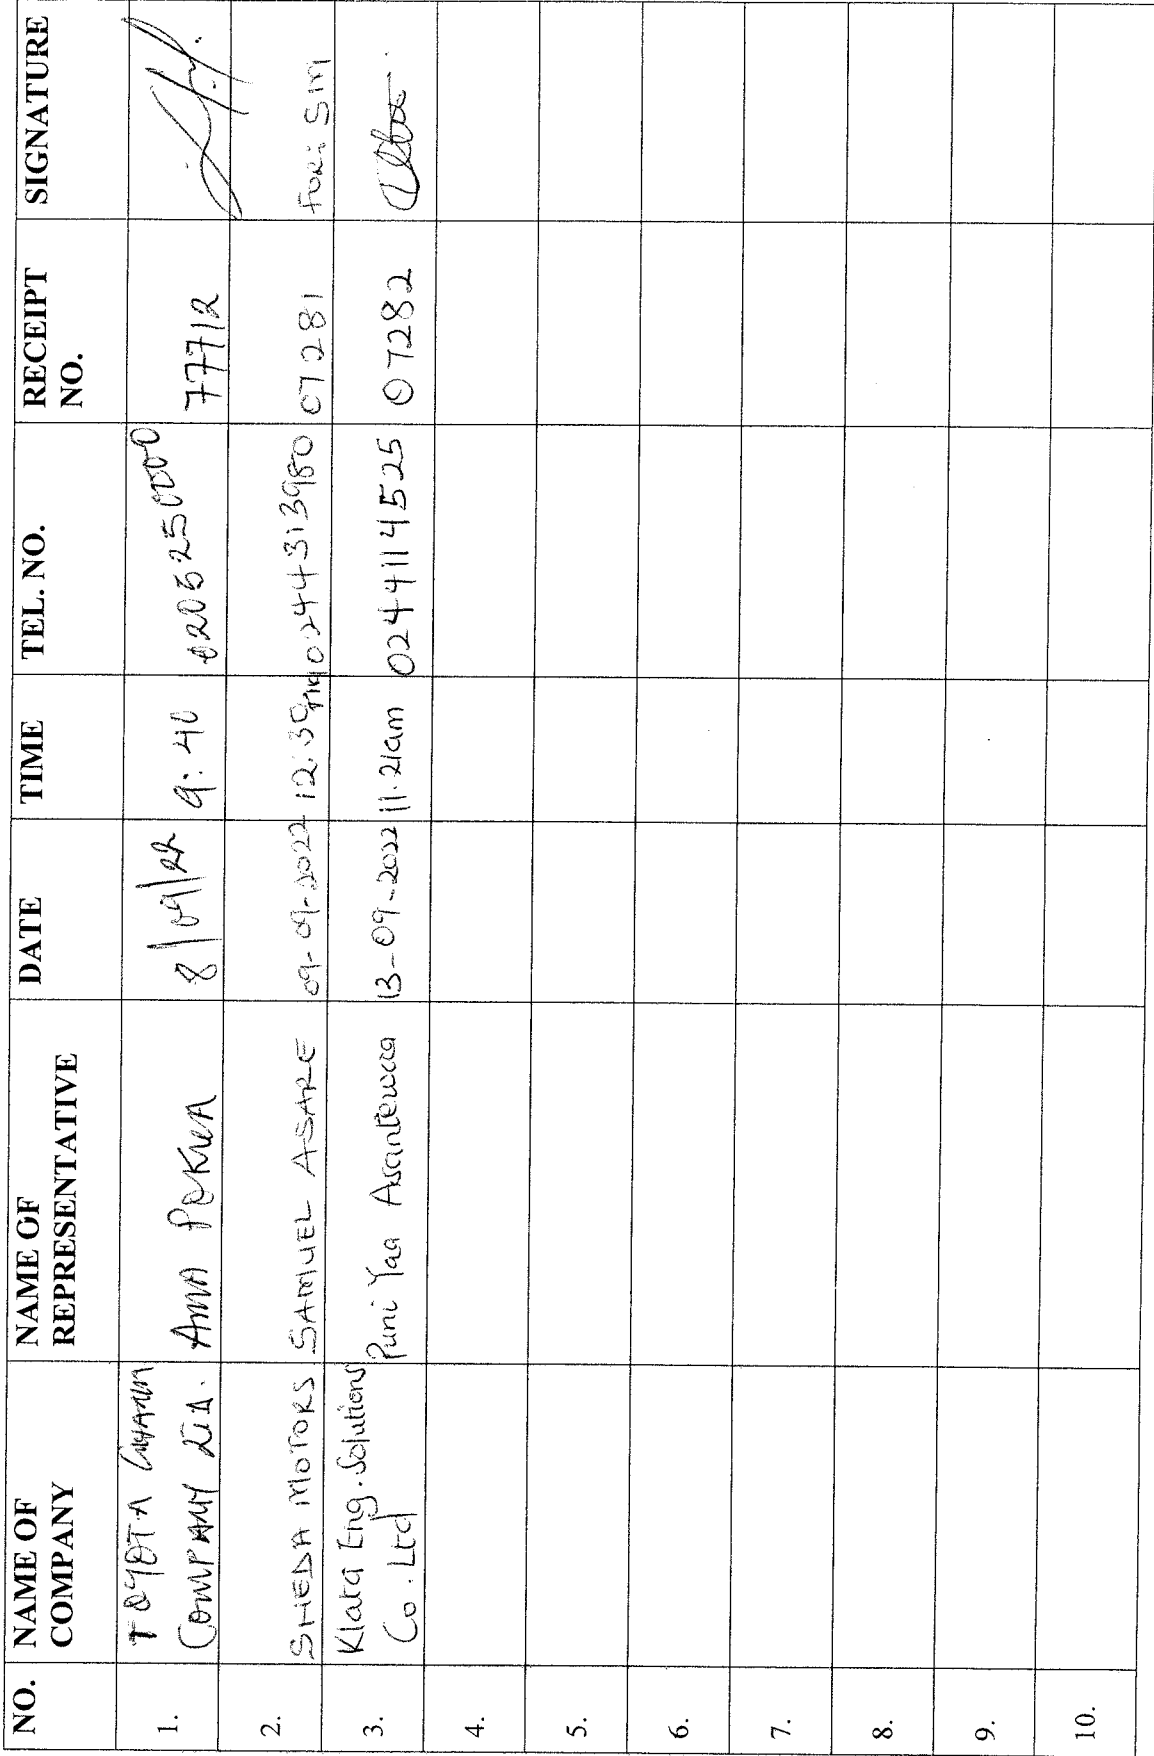 NO. NAME OF COMPANY NAME OF REPRESENTATIVE DATE TIME TEL. NO. RECEIPT NO. SIGNATURE
1. TOYOTA GHANA COMPANY LTD. AMA POKUA 8/09/22 9:40 0205250000 77712
2. SHEDA MOTORS SAMUEL ASARE 09-09-2022 12:39 0244313980 07281 FORi SM
3. Klata Eng. Solutions Co. Ltd Puni Yaa Asantewaa 13-09-2022 11.21am 0244114525 07282
4.
5.
6.
7.
8.
9.
10.